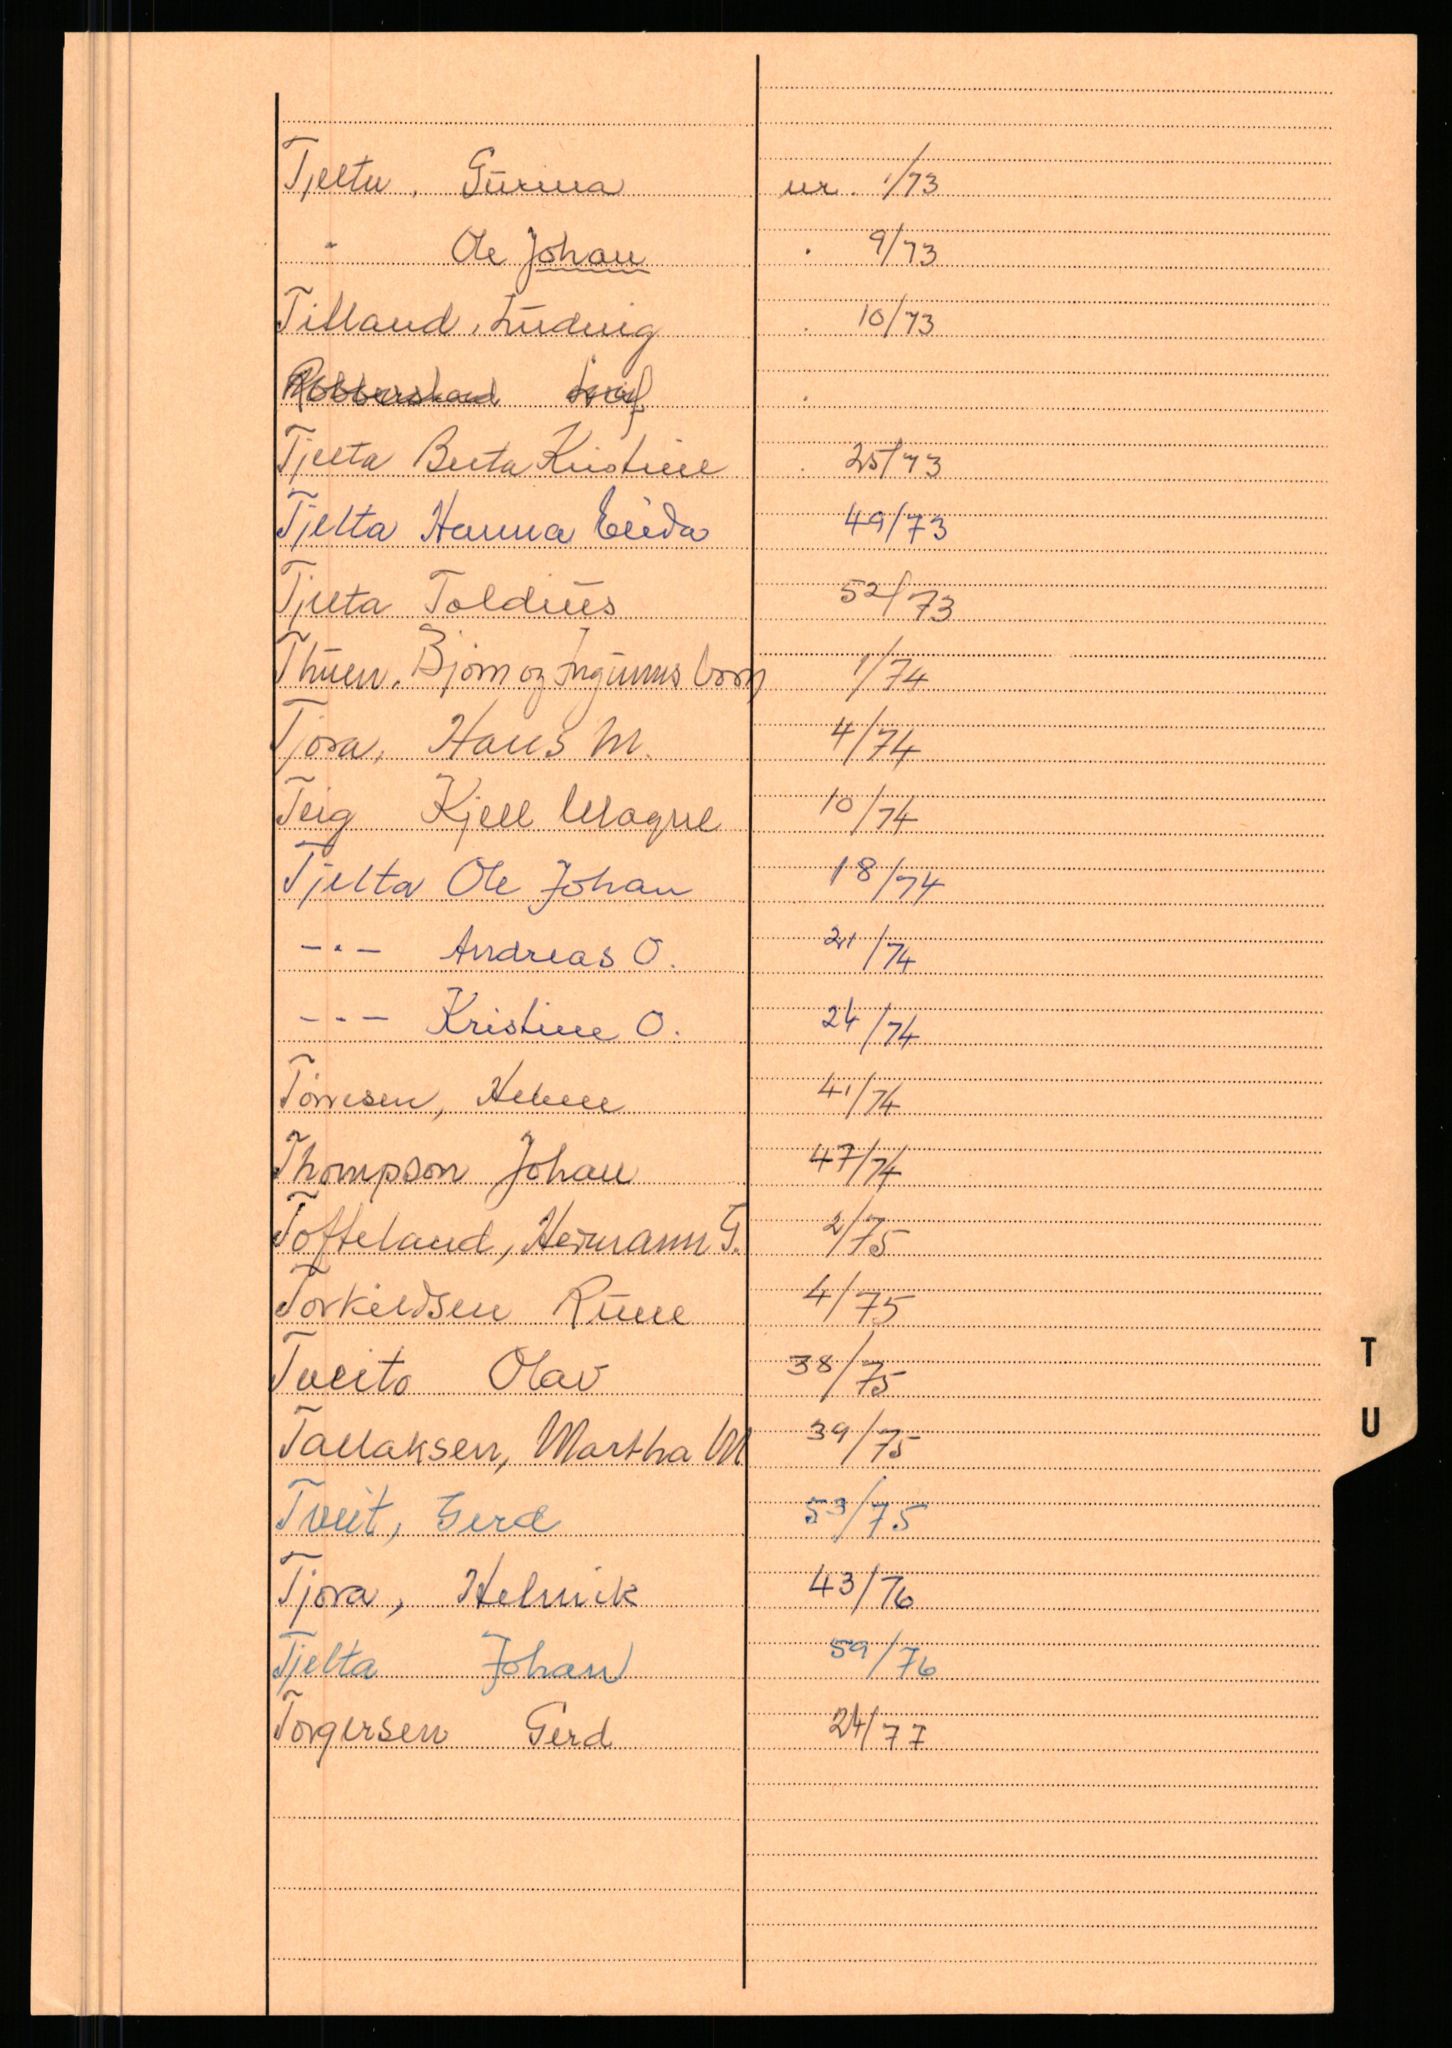 Tjelta, Gurina nr. 1/73
" Ole Johan " 9/73
Tilland, Ludvig " 10/73
Robberstad "
Tjelta Berta Kristine " 25/73
Tjelta Hanna Elida 49/73
Tjelta Toldius 52/73
Thuen, Bjørn og Ingunns barn 1/74
Tjora, Hans M. 4/74
Teig Kjell Magne 10/74
Tjelta Ole Johan 18/74
-"- Andreas O. 21/74
-"- Kristine O. 24/74
Tørresen, Helene 41/74
Thompson Johan 47/74
Tofteland, Hermann G. 2/75
Torkildsen Rune 4/75
Tveito Olav 38/75
Tallaksen, Martha M. 39/75
Tveit, Gerd 53/75
Tjora, Helmik 43/76
Tjelta Johan 59/76
Torgersen Gerd 24/77
T
U